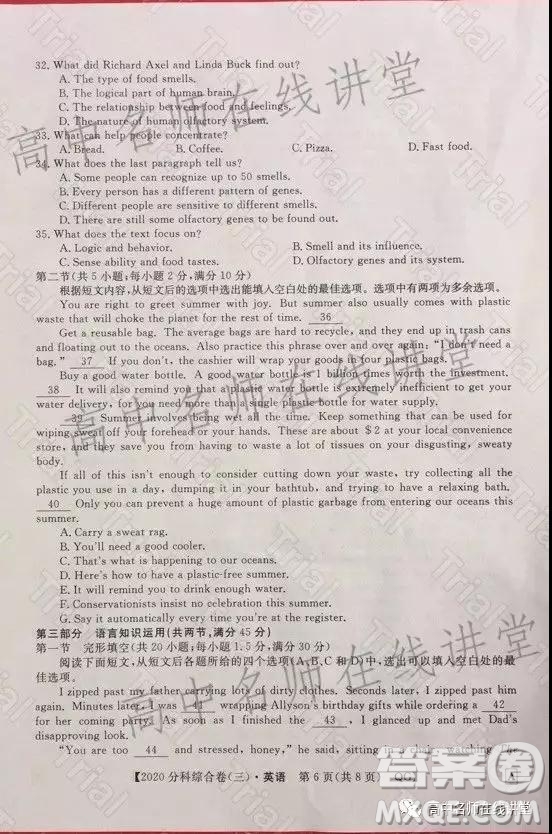 32. What did Richard Axel and Linda Buck find out?
A. The type of food smells.
B. The logical part of human brain.
C. The relationship between food and feelings.
D. The nature of human olfactory system.
33. What can help people concentrate?
A. Bread. B. Coffee. C. Pizza. D. Fast food.
34. What does the last paragraph tell us?
A. Some people can recognize up to 50 smells.
B. Every person has a different pattern of genes.
C. Different people are sensitive to different smells.
D. There are still some olfactory genes to be found out.
35. What does the text focus on?
A. Logic and behavior. B. Smell and its influence.
C. Sense ability and food tastes. D. Olfactory genes and its system.
第二节(共5小题;每小题2分,满分10分)
根据短文内容,从短文后的选项中选出能填入空白处的最佳选项。选项中有两项为多余选项。
You are right to greet summer with joy. But summer also usually comes with plastic
waste that will choke the planet for the rest of time. 36
Get a reusable bag. The average bags are hard to recycle, and they end up in trash cans
and floating out to the oceans. Also practice this phrase over and over again: "I don't need a
bag." 37 If you don't, the cashier will wrap your goods in four plastic bags.
Buy a good water bottle. A good water bottle is 1 billion times worth the investment.
38 It will also remind you that a plastic water bottle is extremely inefficient to get your
water delivery, for you need more than a single plastic bottle for water supply.
39 Summer involves being wet all the time. Keep something that can be used for
wiping sweat off your forehead or your hands. These are about $2 at your local convenience
store, and they save you from having to waste a lot of tissues on your disgusting, sweaty
body.
If all of this isn't enough to consider cutting down your waste, try collecting all the
plastic you use in a day, dumping it in your bathtub, and trying to have a relaxing bath.
40 Only you can prevent a huge amount of plastic garbage from entering our oceans this
summer.
A. Carry a sweat rag.
B. You'll need a good cooler.
C. That's what is happening to our oceans.
D. Here is how to have a plastic-free summer.
E. You'll save money and drink more water.
F. Conservationists insist no celebration this summer.
G. Say it automatically every time you're at the register.
第三部分 语言知识运用(共两节,满分45分)
第一节 完形填空(共20小题;每小题1.5分,满分30分)
阅读下面短文,从短文后各题所给的四个选项(A、B、C和D)中,选出可以填入空白处的最
佳选项。
I zipped past my father carrying lots of dirty clothes. Seconds later, I zipped past him
again. Minutes later, I was 41 wrapping Allyson's birthday gifts while ordering a 42
for her coming party. As soon as I finished the 43, I glanced up and met Dad's
disapproving look.
"You are too 44 and stressed, honey," he said, sitting
【2020分科综合卷(三)·英语 第6页(共8页) QG】
高中名师在线讲堂
高中名师在线讲堂
高中名师在线讲堂
Trial
答案圈
高中名师在线讲堂